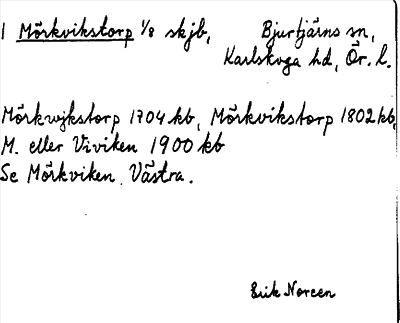 1 Mörkvikstorp 1/8 skjb, Bjurtjärns sn,
Karlskoga hd, Ör. l.
Mörkwjkstorp 1704 kb, Mörkvikstorp 1802 kb,
M. eller Viviken 1900 kb
Se Mörkviken, Västra.
Erik Noreen